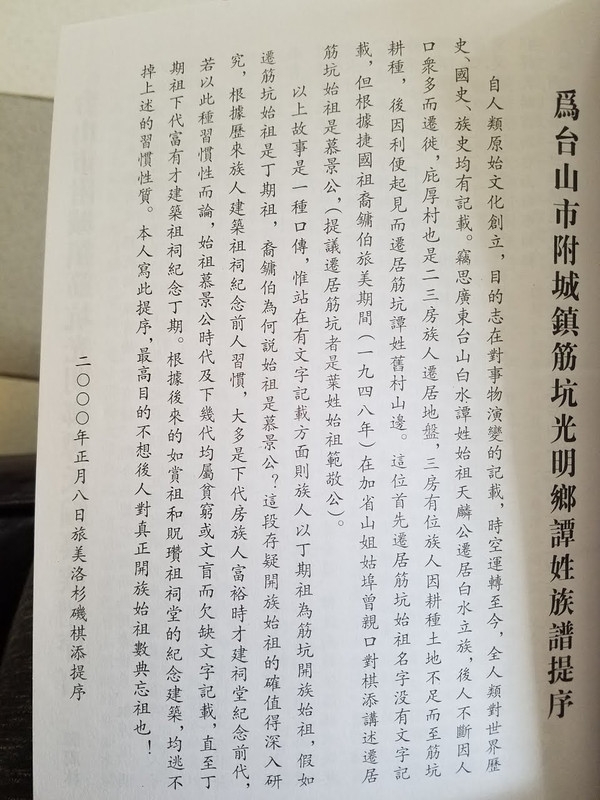 為台山市附城鎮筋坑光明鄉譚姓族譜提序
自人類原始文化創立，目的志在對事物演變的記載，時空運轉至今，全人類對世界歷
史、國史、族史均有記載。竊思廣東台山白水譚姓始祖天麟公遷居白水立族，後人不斷因人
口眾多而遷徙，庇厚村也是二三房族人遷居地盤，三房有位族人因耕種土地不足而至筋坑
耕種，後因利便起見而遷居筋坑譚姓舊村山邊。這位首先遷居筋坑始祖名字没有文字記
載，但根據捷國祖裔鏞伯旅美期間（一九四八年）在加省山姐姑埠曾親口對棋添講述遷居
筋坑始祖是慕景公，（提議遷居筋坑者是葉姓始祖範敬公）。
以上故事是一種口傳，惟站在有文字記載方面則族人以丁期祖為筋坑開族始祖，假如
遷筋坑始祖是丁期祖，裔鏞伯為何説始祖是慕景公？這段存疑開族始祖的確值得深入研
究，根據歷來族人建築祖祠紀念前人習慣，大多是下代房族人富裕時才建祠堂紀念前代，
若以此種習慣性而論，始祖慕景公時代及下幾代均屬貧窮或文盲而欠缺文字記載，直至丁
期祖下代富有才建築祖祠紀念丁期。根據後來的如賞祖和貺瓚祖祠堂的紀念建築，均逃不
掉上述的習慣性質。本人寫此提序，最高目的不想後人對真正開族始祖數典忘祖也！
二〇〇〇年正月八日旅美洛杉磯棋添提序